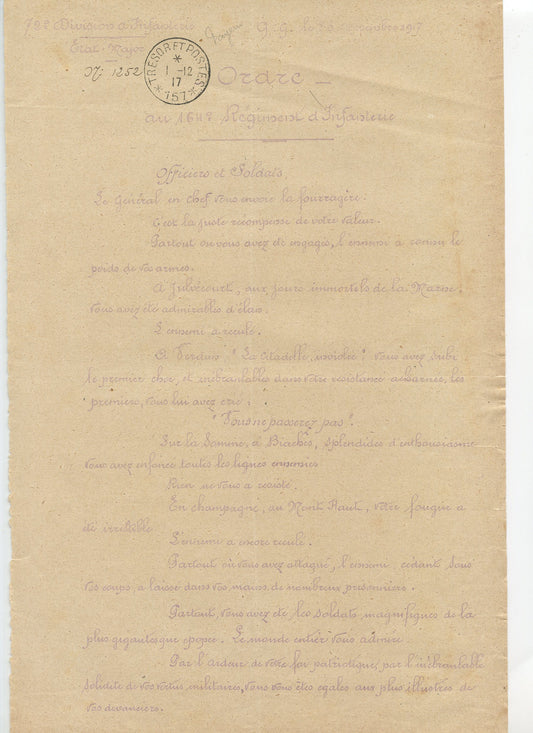 72e Division d'Infanterie
Etat-Major
N° 1252
TRESOR ET POSTES
1-12
17
*157*
Q.G. le septembre 1917
Ordre
au 164e Régiment d'Infanterie
Officiers et Soldats,
Le Général en chef vous envoie la fourragère.
C'est la juste récompense de votre valeur.
Partout où vous avez été engagés, l'ennemi a connu le
poids de vos armes.
A Julvécourt, aux jours immortels de la Marne.
Vous avez été admirables d'élan.
L'ennemi a reculé.
A Verdun, "La Citadelle inviolée" vous avez subi
le premier choc, et inébranlables dans votre résistance acharnée, les
premiers, vous lui avez crié:
"Vous ne passerez pas".
Sur la Somme, à Biaches, splendides d'enthousiasme
vous avez enfoncé toutes les lignes ennemies
Rien ne vous a résisté.
En champagne, au Mont Haut, votre fougue a
été irrésistible
L'ennemi a encore reculé.
Partout où vous avez attaqué, l'ennemi, cédant sous
vos coups, a laissé dans vos mains, de nombreux prisonniers.
Partout, vous avez été les soldats magnifiques de la
plus gigantesque épopée. Le monde entier vous admire.
Par l'ardeur de votre foi patriotique, par l'inébranlable
solidité de vos vertus militaires, vous vous êtes égalés aux plus illustres de
vos devanciers.